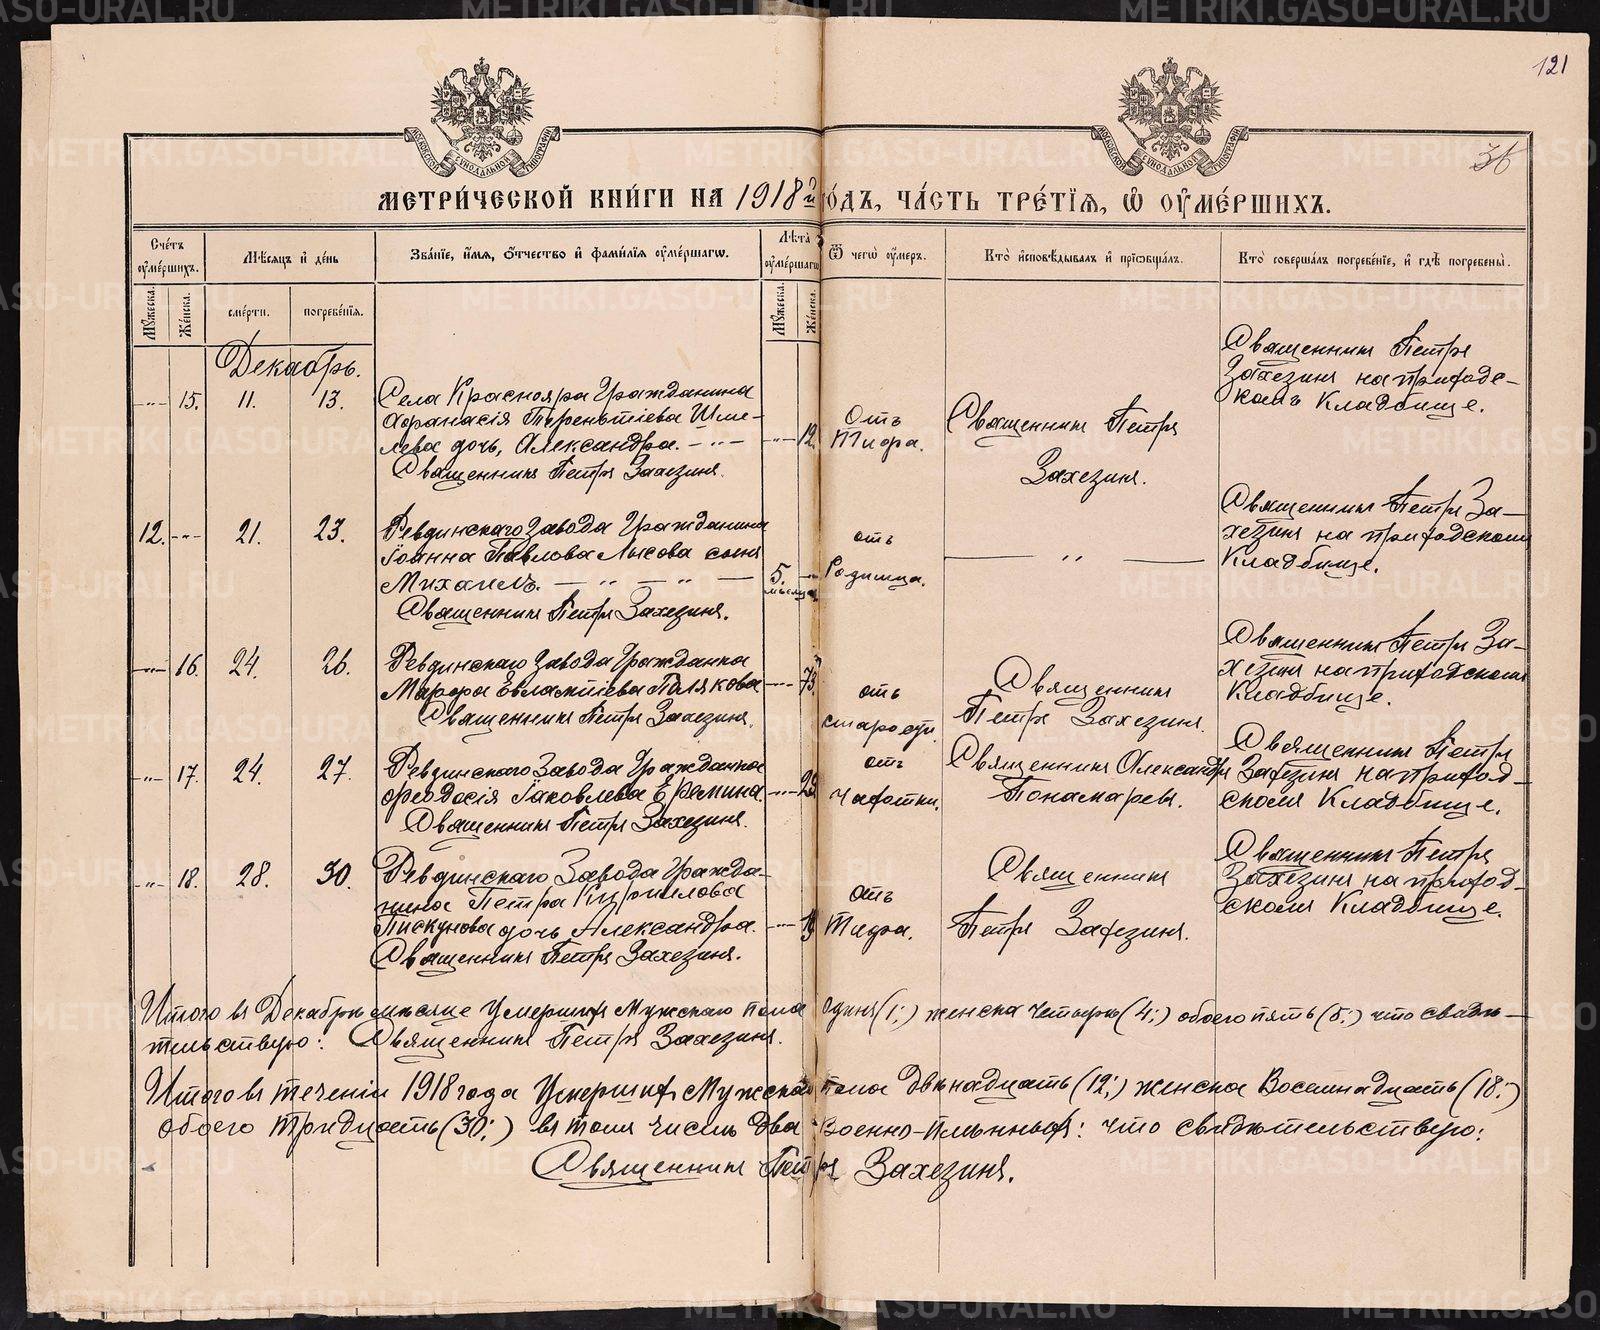 121
36
МЕТРИ́ЧЕСКОЙ КНИ́ГИ НА 1918й го́дъ, ЧА́СТЬ ТРЕ́ТЇѦ, Ѡ҆ ОУ҆МЕ́РШИХЪ.
Сче́тъ оу҆ме́ршихъ.
Мѣ́сѧцъ и҆ де́нь
Зва́нїе, и҆́мѧ, ѻ҆́тчество и҆ фами́лїѧ оу҆ме́ршагѡ.
Лѣ́та оу҆ме́ршагѡ
Ѿ чегѡ̀ оу҆́меръ.
Кто̀ и҆сповѣ́дывалъ и҆ прїѡбща́лъ.
Кто̀ соверша́лъ погребе́нїе, и҆ гдѣ̀ погребены̀.
Мꙋ́жеска.
Же́нска.
сме́рти.
погребе́нїѧ.
Мꙋ́жеска.
Же́нска.
Декабрь.
-"- 15. 11. 13.
Села Краснояра Гражданина
Афанасія Терентіева Шме-
лева дочь, Александра. -"-
Священникъ Петръ Захезинъ.
-"- 12.
Отъ
Тифа.
Священникъ Петръ
Захезинъ.
Священникъ Петръ
Захезинъ на приход-
скомъ Кладбище.
12. -"- 21. 23.
Ревдинскаго завода Гражданина
Іоанна Павлова Лысова сынъ
Михаилъ. — " — " —
Священникъ Петръ Захезинъ.
5. месяцев
отъ
Родимца.
— " —
Священникъ Петръ За-
хезинъ на приходскомъ
Кладбище.
-"- 16. 24. 26.
Ревдинскаго завода Гражданка
Марфа Евлампіева Полякова
Священникъ Петръ Захезинъ.
-"- 73.
отъ
старости.
Священникъ
Петръ Захезинъ.
Священникъ Петръ За-
хезинъ на приходскомъ
Кладбище.
-"- 17. 24. 27.
Ревдинскаго Завода Гражданка
Феодосія Іаковлева Еремина.
Священникъ Петръ Захезинъ.
отъ
Чахотки.
Священникъ Александръ
Пономаревъ.
Священникъ Петръ
Захезинъ на приход-
скомъ Кладбище.
-"- 18. 28. 30.
Ревдинскаго Завода Гражда-
нина Петра Кирилова
Пискунова дочь Александра.
Священникъ Петръ Захезинъ.
-"- 19
отъ
Тифа.
Священникъ
Петръ Захезинъ.
Священникъ Петръ
Захезинъ на приход-
скомъ Кладбище.
Итого въ Декабрѣ месяце Умершихъ Мужскаго пола одинъ (1;) женска Четыре (4;) обоего пять (5;) что свидѣ-
тельствую: Священникъ Петръ Захезинъ.
Итого въ теченіи 1918 года Умершихъ Мужскаго пола Двѣнадцать (12;) женска Восемнадцать (18;)
обоего тридцать (30;) въ томъ числѣ два Военно-плѣнныхъ: что свидѣтельствую:
Священникъ Петръ Захезинъ.
METRIKI.GASO-URAL.RU